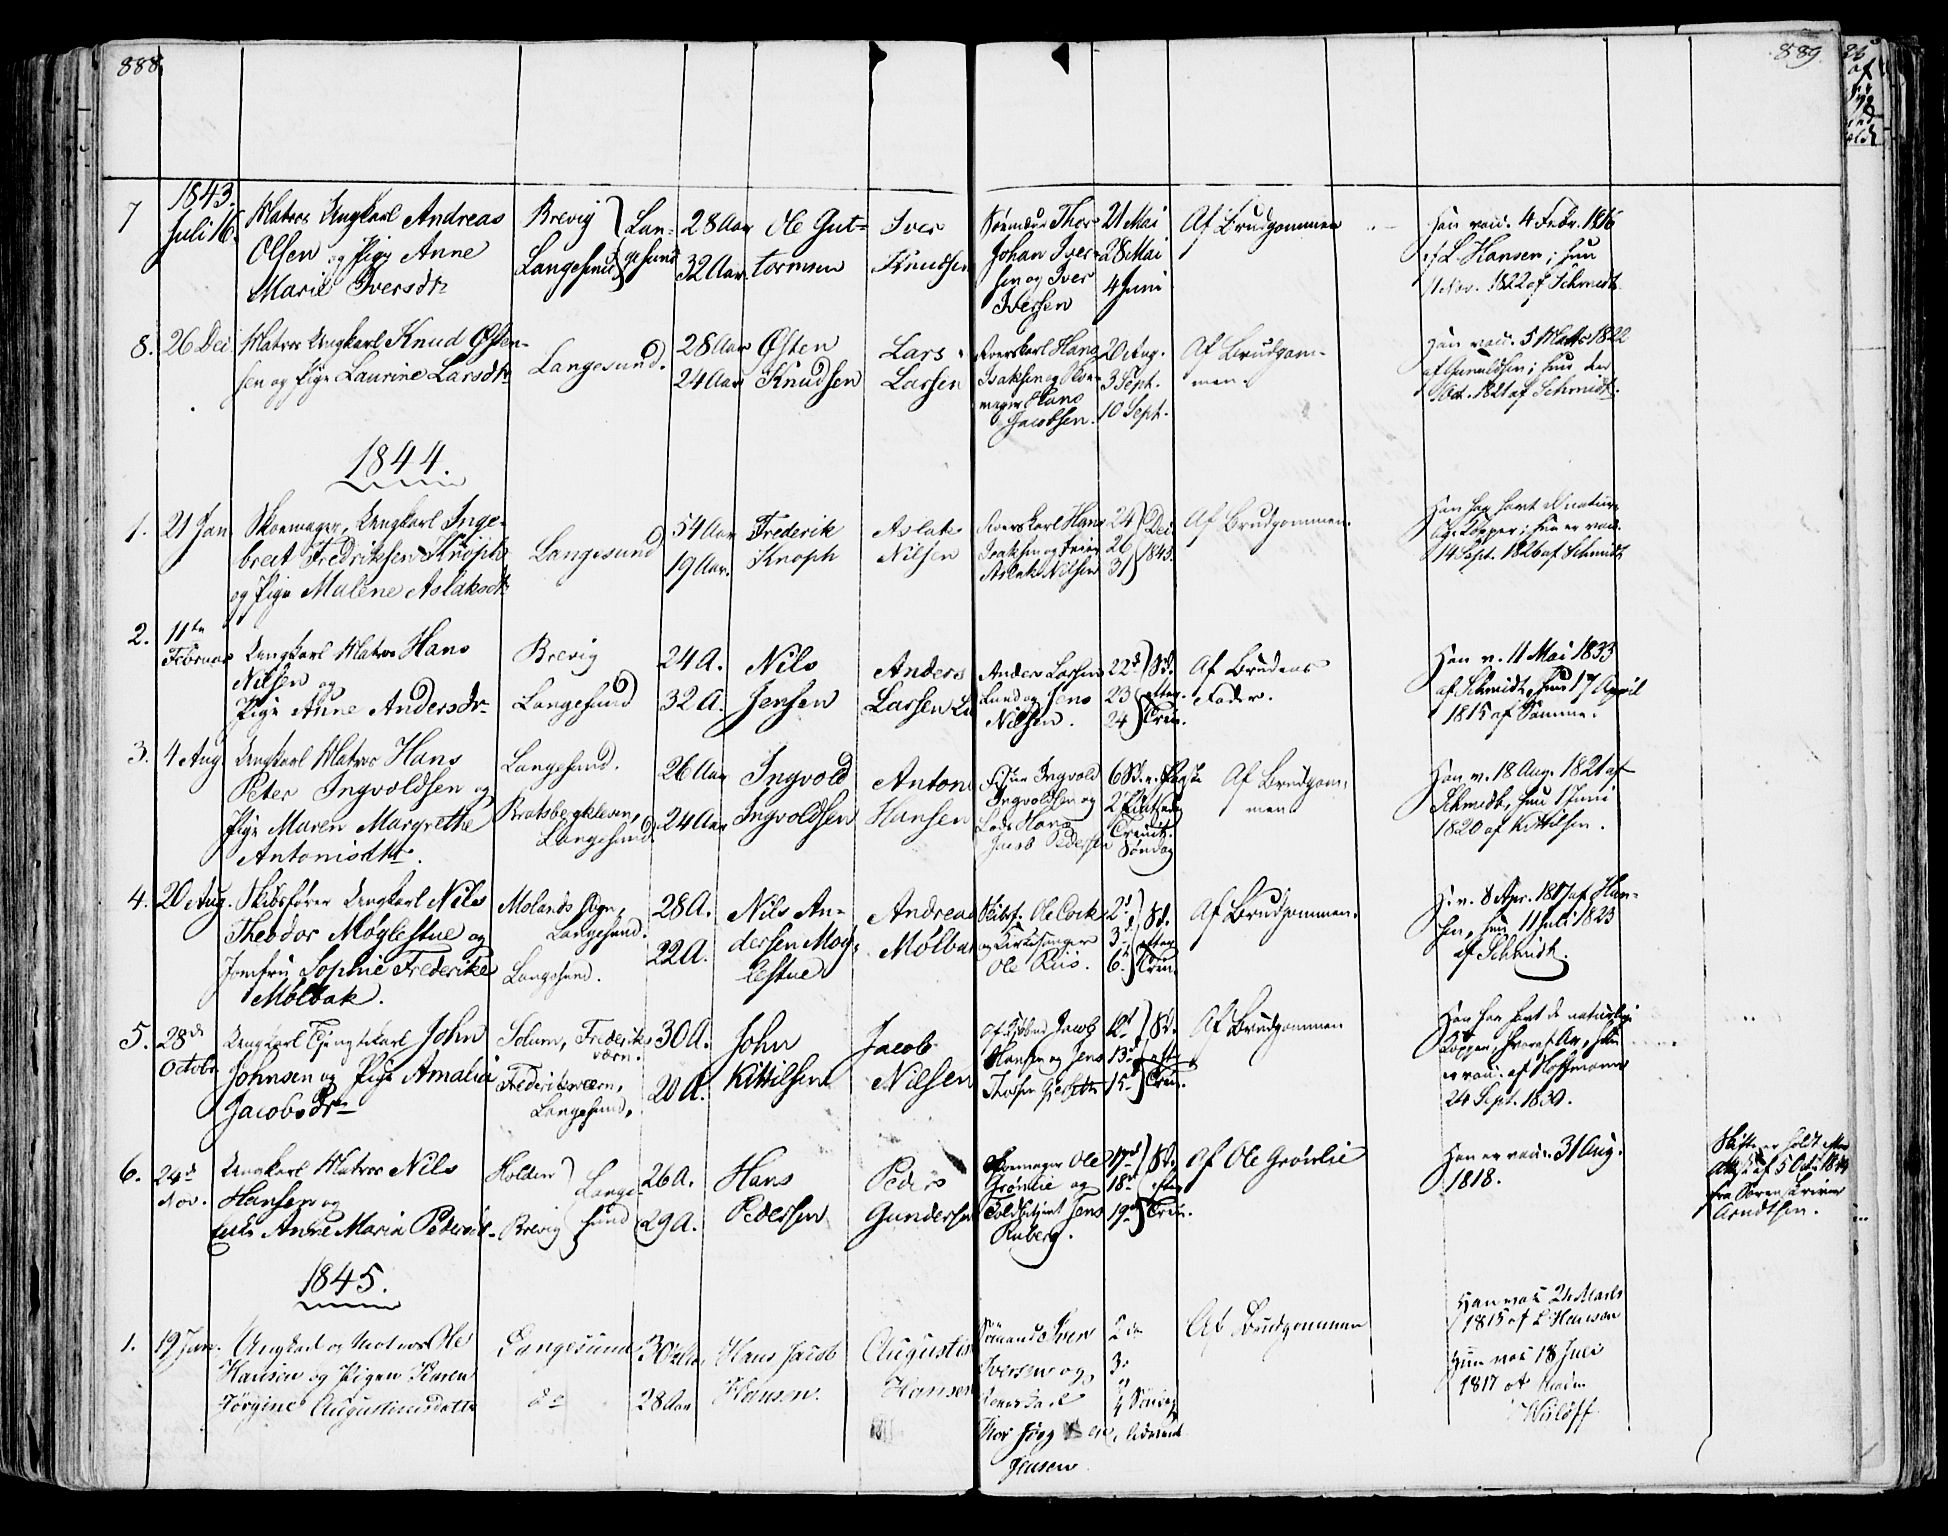 888
889.
1843.
7
Juli 16.
Matros Ungkarl Andreas
Olsen og Pige Anne
Marie Iversdtr
Brevig
Langesund
Lan-
gesund
28 Aar
32 Aar
Ole Gut-
tormsen
Iver
Knudsen
Thor
Johan Iver-
sen og Iver
Iversen
21 Mai
28 Mai
4 Juni
Af Brudgommen
Han vacc. 4 Febr. 1816
af L. Hansen; hun
Nov. 1822 af Schmidt
8.
26 Dec
Matros Ungkarl Knud Østen-
sen og Pige Laurine Larsdtr
Langesund.
28 Aar
24 Aar
Østen
Knudsen
Lars
Larsen
Hans
Isaksen og Skoe-
mager Hans
Jacobsen.
20 Aug.
3 Sept.
10 Sept.
Af Brudgom-
men.
Han vacc. 5 Marts 1822
af Gunuldsen; hun den
Oct. 1821 af Schmidt.
1844.
1.
21 Jan
Skoemager, Ungkarl Inge-
bret Fredriksen Knoph
og Pige Malene Aslaksdtr
Langesund
54 Aar
19 Aar.
Frederik
Knoph
Aslak
Nilsen
Hans
Isaksen og
Aslak Nilsen
24
26
31
Dec
1843.
Af Brudgommen.
Han har havt de natur-
lige Kopper; hun er vacc.
14 Sept. 1826 af Schmidt
2.
11te
Februar
Ungkarl Matros Hans
Nilsen og
Pige Anne Andersdtr
Brevig
Langesund
24 A.
32 A.
Nils
Jensen
Anders
Larsen
Anders Larsen
Lund og Jens
Nilsen.
22d
23
24
Sd.
efter
Trin.
Af Brudens
Fader.
Han v. 11 Mai 1833
af Schmidt, hun 17 April
1815 af Samme.
3.
4 Aug
Ungkarl Matros Hans
Peter Ingvoldsen og
Pige Maren Margrethe
Antonisdtr.
Langesund.
Bratsbergkleven,
Langesund.
26 Aar
24 Aar
Ingvold
Ingvoldsen
Anton
Hansen
Ingvold
Ingvoldsen og
Lods Hans
Jacob Pedersen
6 Sd. e. Paaske
2 Pintsed.
Trinit.
Søndag
Af Brudgom-
men
Han v. 18 Aug. 1821 af
Schmidt, hun 1 Juni
1820 af Kittilsen.
4.
20 Aug.
Skibsfører Ungkarl Nils
Theodor Møglestue og
Jomfru Sophie Frederike
Mølbak.
Molands Sogn,
Langesund.
Langesund.
28 A.
22 A.
Nils An-
dersen Møg-
lestue
Andreas
Mølbak
Skibsf. Ole Cock
og Kirkesanger
Ole Riis.
2d
3d
6t
Sd.
efter
Trin.
Af Brudgommen.
H. v. 8 Apr. 1817 af Han-
sen, hun 11 Juli 1823
af Schmidt.
5.
28de
Octobr
Ungkarl Tjenestekarl John
Johnsen og Pige Amalia
Jacobsdtr
Solum, Frederiks-
værn.
Frederiksværn,
Langesund,
30 A.
20 A.
John
Kittilsen
Jacob
Nilsen
Jacob
Hansen og Jens
12t
13d
15d
Sd.
efter
Trin.
Af Brudgommen
Han har havt de naturlige
Kopper, hun
er vacc. af Hoffmann
24 Sept. 1830.
6.
24d
Nov.
Ungkarl Matros Nils
Hansen og
Enke Anne Maria Pedersdtr.
Holden
Brevig
Lange-
sund
26 A.
29 A.
Hans
Pedersen
Peder
Gundersen
Skoemager Ole
Grønlie og
Toldbetjent Jens
Ruberg.
17d
18d
19d
Sd.
efter
Trin.
Af Ole Grønlie
Han er vacc. 31 Aug.
1818.
Skifte er holdt
Attest af 5 Oct. 1844
fra Sorenskriver
Arndtsen.
1845.
1.
19 Jan.
Ungkarl og Matros Ole
Hansen og Pigen Karen
Jørgine Augustinusdatter
Langesund
do
30 Aar
28 Aar
Hans Jacob
Hansen.
Augustin
Hansen
Sømand Iver
Iversen og
Jensen
2de
3.
4 Søndag
Advent
Af Brudgommen
Han vac 24 Marts
1815 af L. Hansen
Hun vac 18 Juli
1817 af
Wisløff